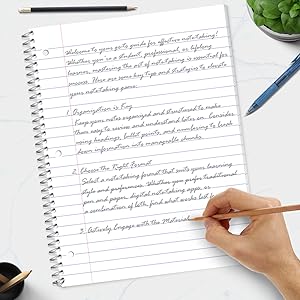 Welcome to your quite guide for effective notetaking!
Whether you're a student, professional, or lifelong
learner, mastering the art of notetaking is essential for
success. Here are some key tips and strategies to elevate
your notetaking game:
1. Organization is Key
Keep your notes organized and structured to make
them easy to review and understand later on. Consider
using headings, bullet points, and numbering to break
down information into manageable chunks.
2. Choose the Right Format
Select a notetaking format that suits your learning
style and preferences. Whether you prefer traditional
pen and paper, digital notetaking apps, or
a combination of both, find what works best
3. Actively Engage with the Material